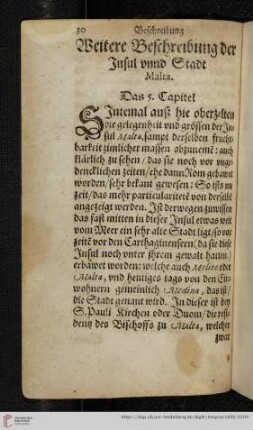 30 Beschreibung
Weitere Beschreibung der
Insul vnnd Stadt
Malta.
Das 5. Capitel
SIntemal auß hie oberzelten
die gelegenheit vnd grössen der In-
sul Malta, sampt derselben frucht-
barkeit zimlicher massen abzunemē: auch
klärlich zu sehen / das sie noch vor vnge-
dencklichen zeiten / ehe dann Rom gebawt
worden / sehr bekant gewesen: So ists in
zeit / das mehr particularitetē von derselbē
angezeigt werden. Ist derwegen zuwissen
das fast mitten in dieser Insul etwas weit
vom Meer ein sehr alte Stadt ligt / so vor
zeitē vor den Carthaginensern / da sie diese
Insul noch vnter jhrem gewalt hattn /
erbawet worden: welche auch Melite oder
Malta, vnd heutiges tags von den Ein-
wohnern gemeinlich Medina, das ist /
die Stadt genant wird. In dieser ist bey
S. Pauli Kirchen oder Duom / die resi-
dentz des Bischoffs zu Malta, welcher
zwar